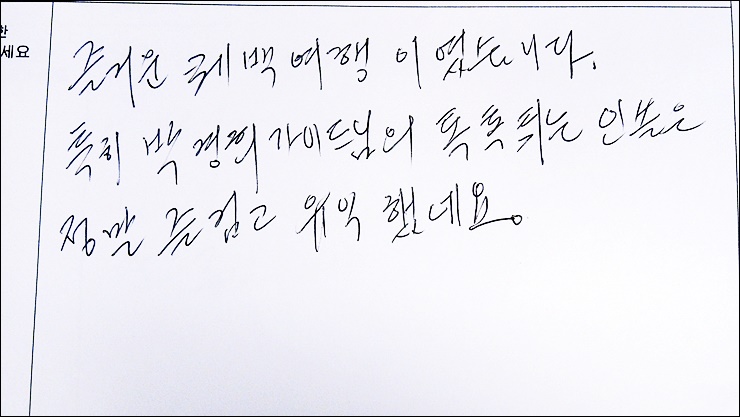 한
세요
즐거운 퀘백 여행 이였습니다.
특히 박경희 가이드님의 톡톡 튀는 인솔은
정말 즐겁고 유익 했네요.